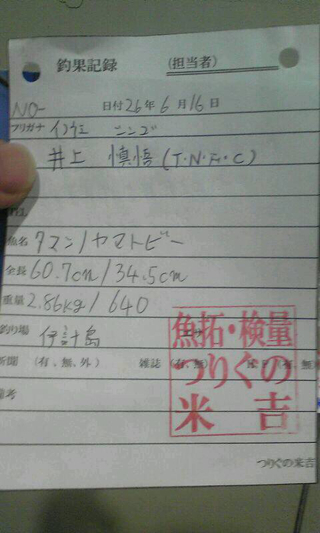 釣果記録 (担当者)
NO-
日付26年 6月 16日
フリガナ イノウエ シンゴ
井上 慎悟(T・N・F・C)
魚名 タマン/ヤマトビー
全長 60.7cm/34.5cm
重量 2.86kg/640
釣り場 伊計島
新聞 (有、無、外) 雑誌 (有、無) (有、無)
備考
魚拓・検量
つりぐの
米吉
つりぐの米吉